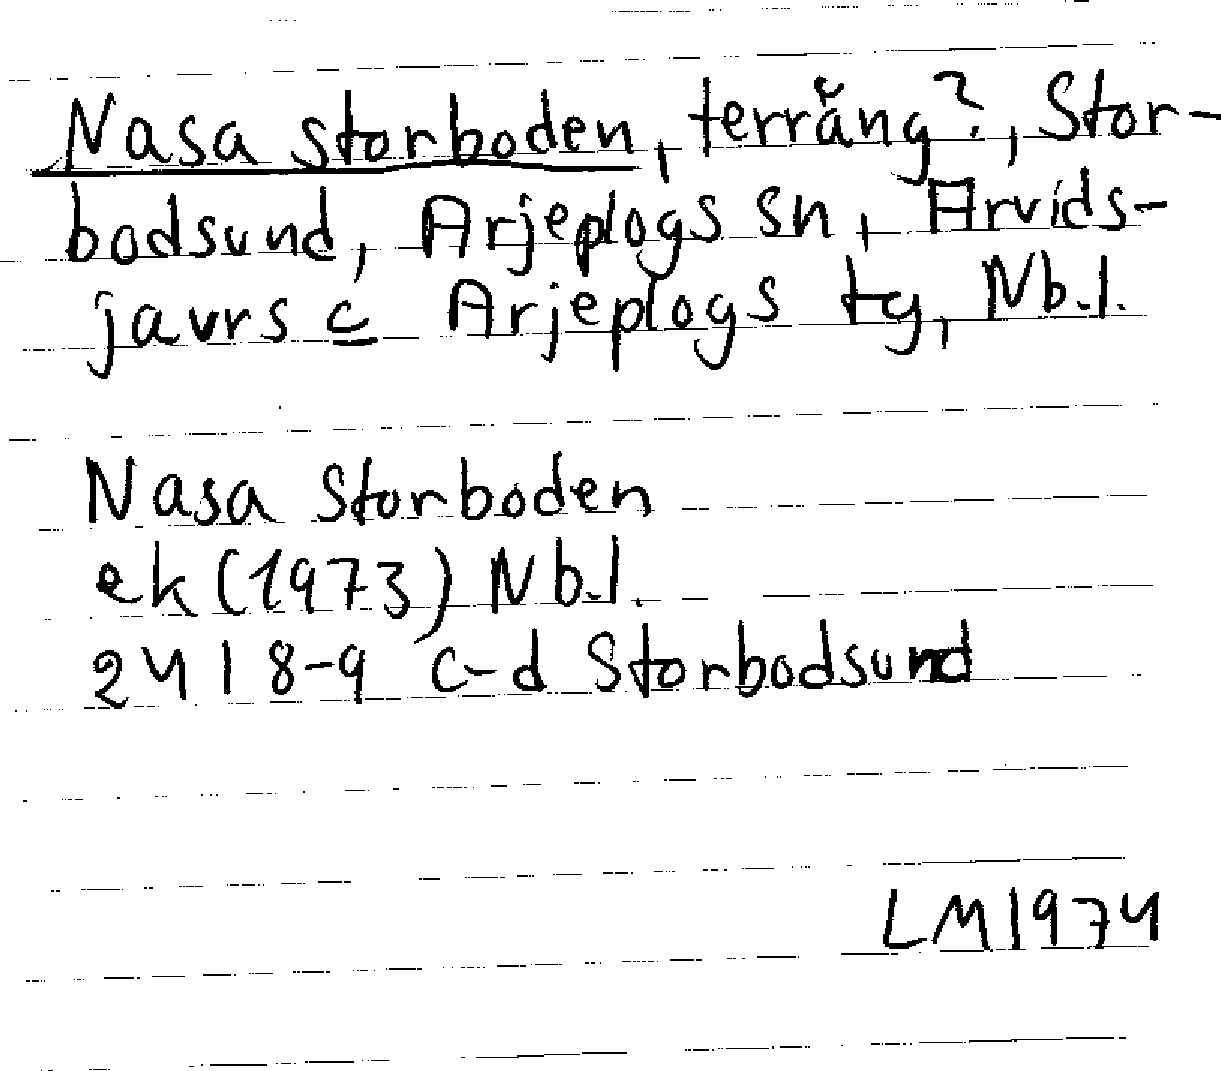 Nasa storboden, terräng?, Stor-
bodsund, Arjeplogs sn, Arvids-
javrs c Arjeplogs tg, Nb.l.
Nasa Storboden
ek (1973) Nb.l.
2418-9 c-d Storbodsund
LM1974